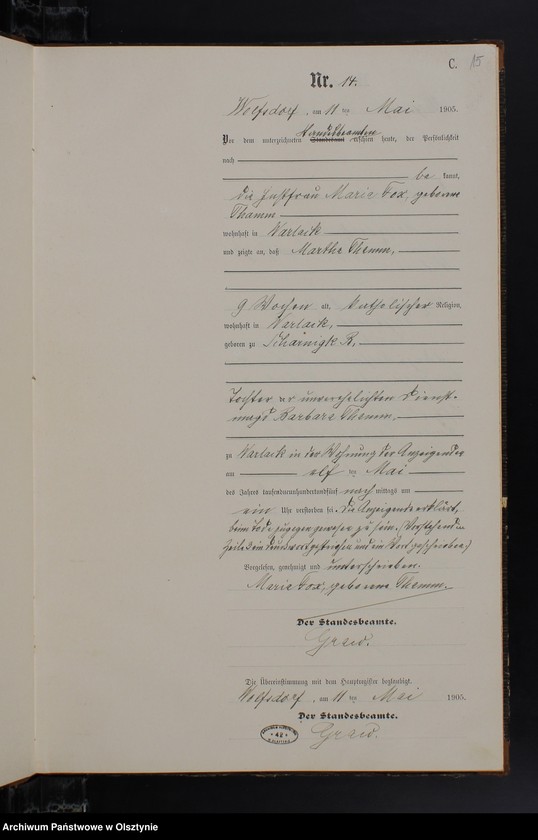 C. 15
Nr. 14.
Wolfsdorf, am 11 ten Mai 1905.
Standesbeamten
Vor dem unterzeichneten Standesamt erschien heute, der Persönlichkeit
nach
be kannt,
die Hausfrau Marie Fox, geborene
Thamm
wohnhaft in Warlack
und zeigte an, daß Martha Themm,
9 Wochen alt, katholischer Religion,
wohnhaft in Warlack,
geboren zu R,
Tochter der unverehelichten Dienst-
magd Barbara Themm,
zu Warlack in der Wohnung der Anzeigenden
am elf ten Mai
des Jahres tausendneunhundertundfünf nach mittags um
ein Uhr verstorben sei. Die Anzeigende erklärt,
beim Tode zugegen gewesen zu sein. (Vorstehend in
Zeile 2 ein Druckwort gestrichen und ein Wort geschrieben)
Vorgelesen, genehmigt und unterschrieben.
Marie Fox, geborene Themm.
Der Standesbeamte.
Die Übereinstimmung mit dem Hauptregister beglaubigt.
Wolfsdorf, am 11 ten Mai 1905.
Der Standesbeamte.
42
Archiwum Państwowe w Olsztynie